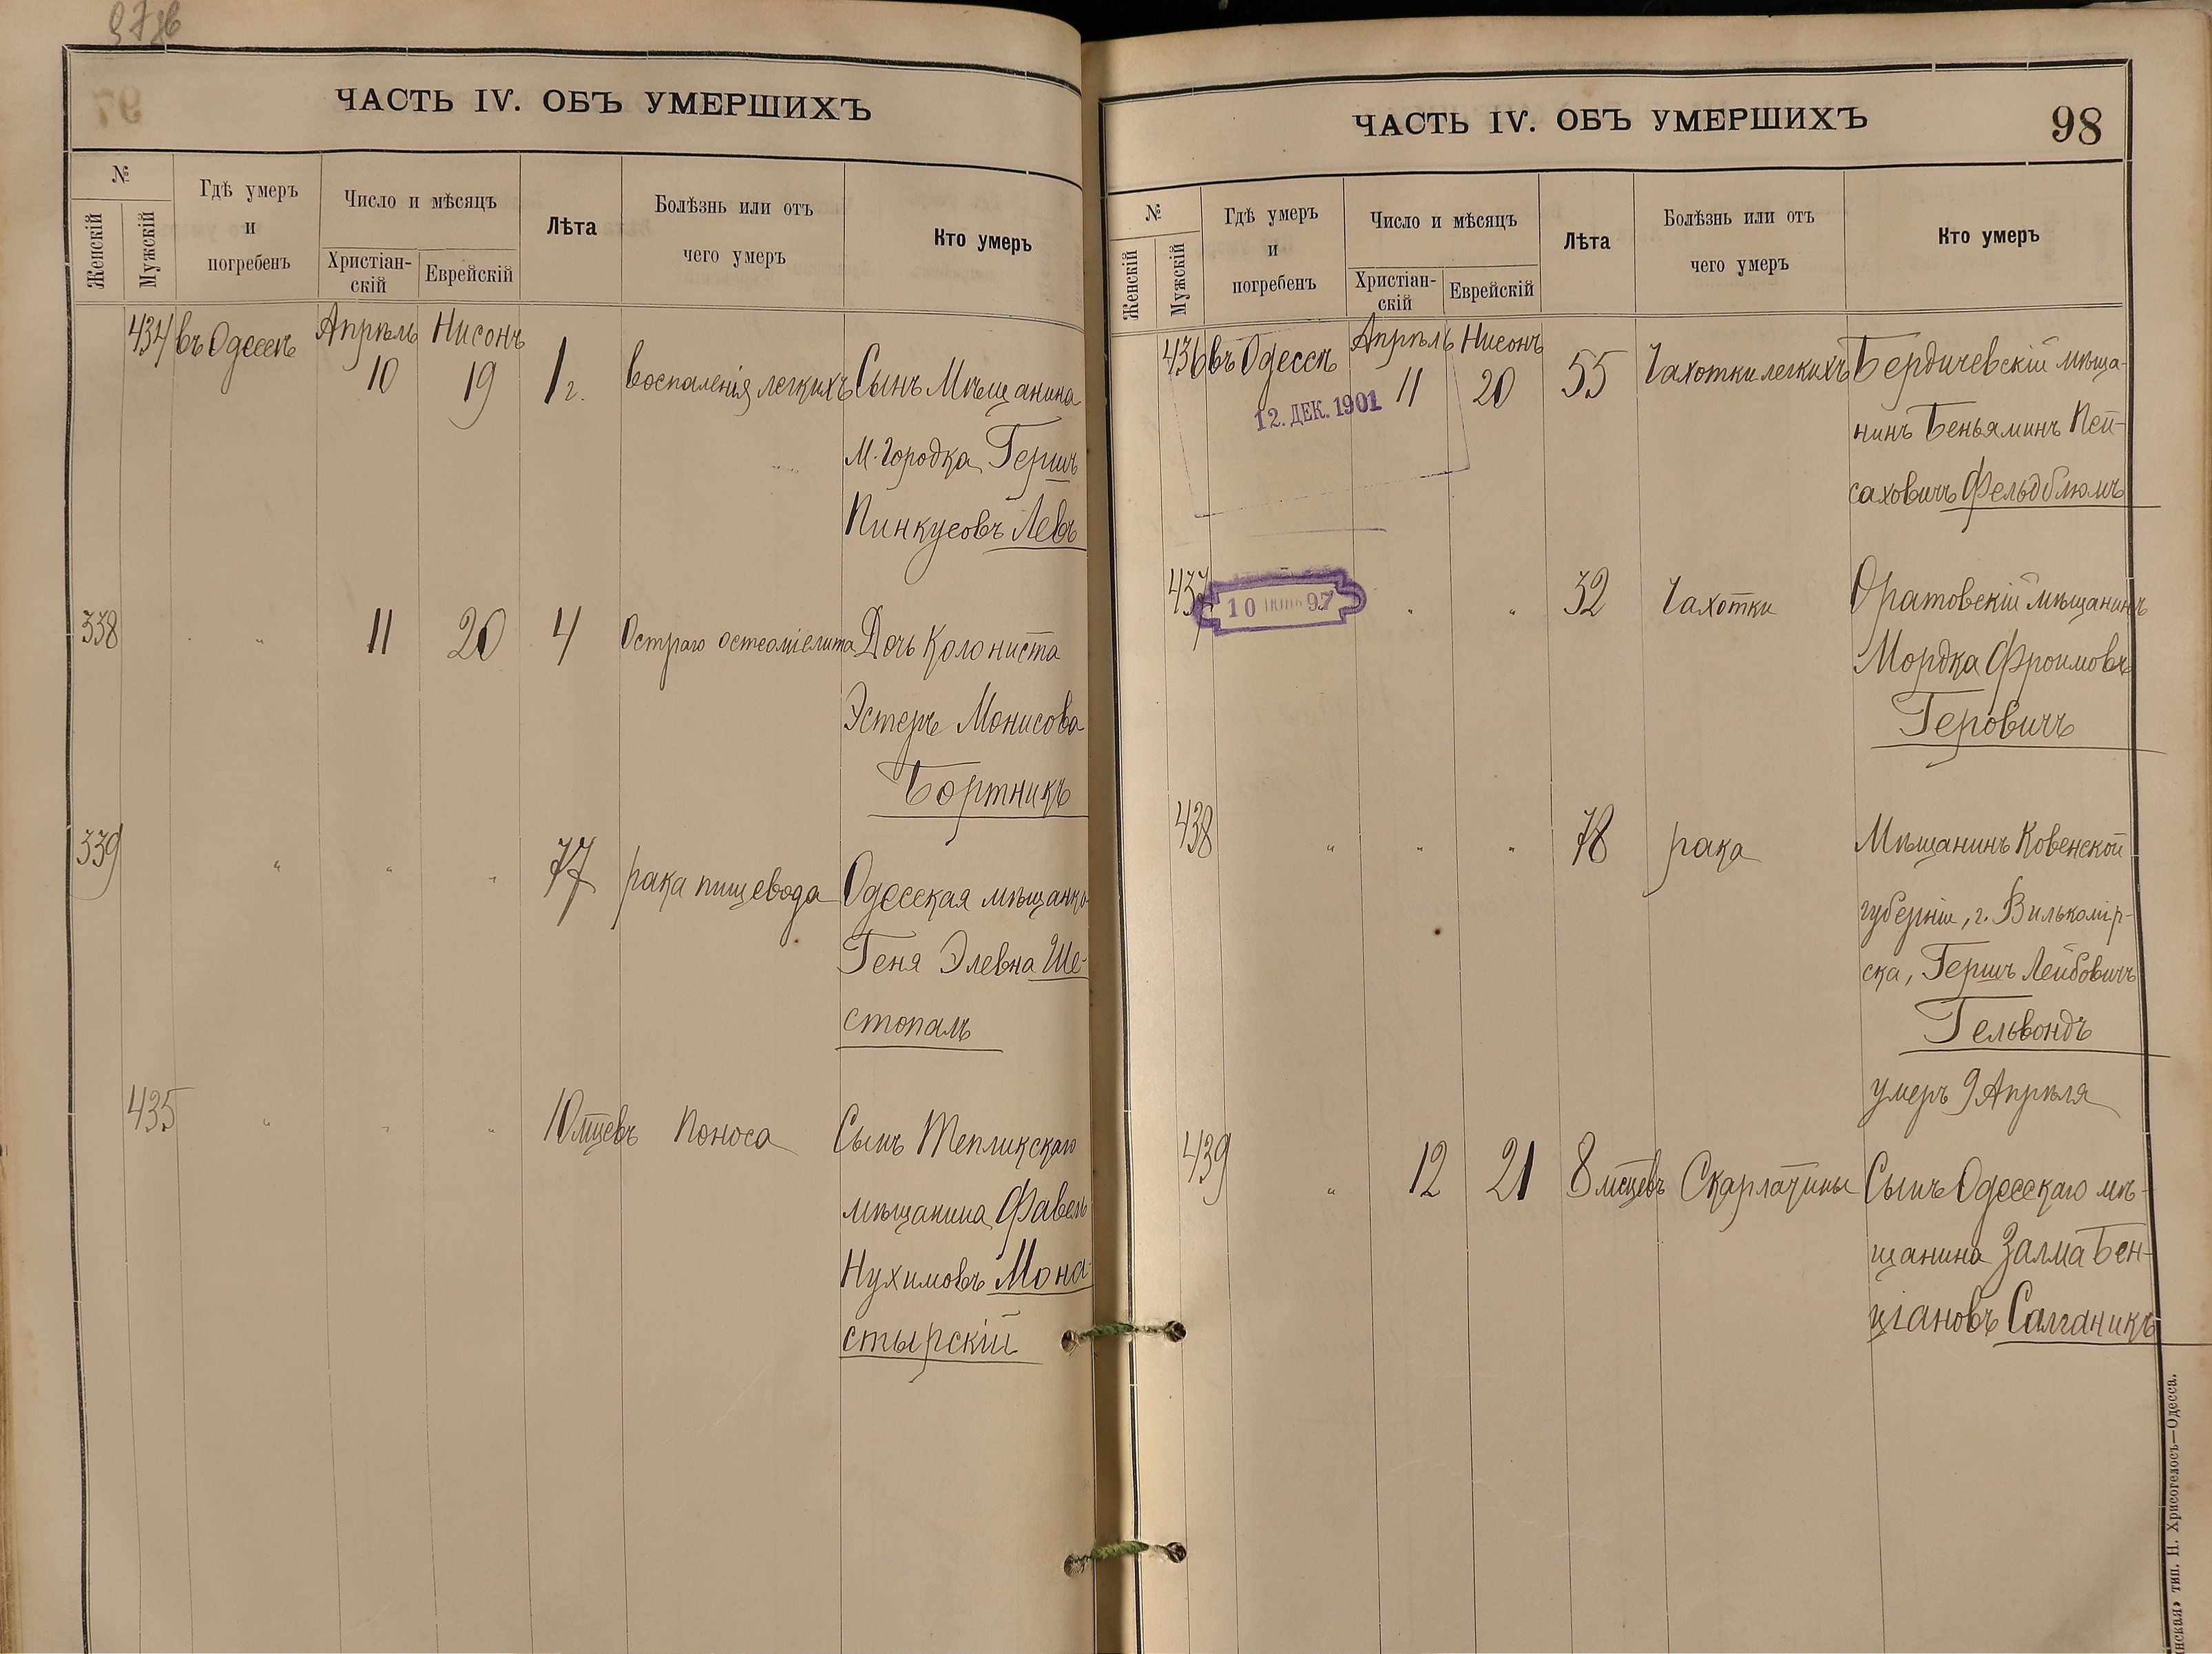 ЧАСТЬ IV. ОБЪ УМЕРШИХЪ
№
Женскій
Мужскій
Гдѣ умеръ
и
погребенъ
Число и мѣсяцъ
Христіан-
скій
Еврейскій
Лѣта
Болѣзнь или отъ
чего умеръ
Кто умеръ
434 въ Одессѣ Апрѣль 10 Нисонъ 19 1 г. воспаленія легкихъ Сынъ Мѣщанина
м. Городка Гершъ
Пинкусовъ Левъ
338 " " 11 20 4 Остраго остеоміелита Дочь Колониста
Эстеръ Монисова
Бортникъ
339 " " " 77 рака пищевода Одесская мѣщанка
Геня Элевна Ше-
стопалъ
435 " " " 10 мцевъ Поноса Сынъ Тепликскаго
мѣщанина Фавель
Нухимовъ Мона-
стырскій
ЧАСТЬ IV. ОБЪ УМЕРШИХЪ
98
№
Женскій
Мужскій
Гдѣ умеръ
и
погребенъ
Число и мѣсяцъ
Христіан-
скій
Еврейскій
Лѣта
Болѣзнь или отъ
чего умеръ
Кто умеръ
436 въ Одессѣ Апрѣль 11 Нисонъ 20 55 Чахотки легкихъ Бердичевскій мѣща-
нинъ Беньяминъ Пей-
саховичъ Фельдблюмъ
12. ДЕК. 1901
437 " " 32 Чахотки Оратовскій мѣщанинъ
Мордка Фроимовъ
Геровичъ
10 97
438 " " " 78 рака Мѣщанинъ Ковенской
губерніи, г. Вилькомір-
ска, Гершъ Лейбовичъ
Гельвондъ
умеръ 9 Апрѣля
439 " 12 21 8 мсцевъ Скарлатины Сынъ Одесскаго мѣ-
щанина Залма Бен-
ціановъ Салганикъ
тип. Н. Хрисогелосъ—Одесса.